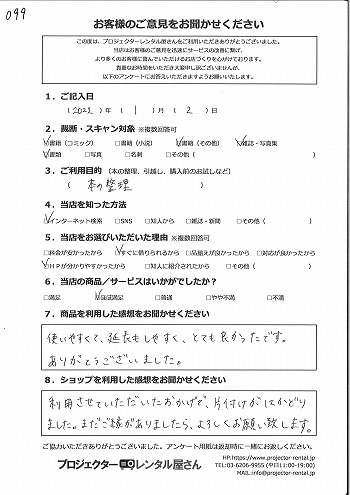 099
お客様のご意見をお聞かせください
この度は、プロジェクターレンタル屋さんをご利用いただきありがとうございました。
当店はお客様のご意見を迅速にサービスの改善に繋げ、
より多くのお客様に喜んでいただけるお店づくりを心がけております。
貴重なお時間をいただき大変申し訳ございませんが、
以下のアンケートにお答えいただきますようお願いいたします。
1．ご記入日
（2022）年（1）月（2）日
2．裁断・スキャン対象 ※複数回答可
☑書籍（コミック） □書籍（小説） ☑書籍（その他） ☑雑誌・写真集
☑書類 □写真 □名刺 □その他（ ）
3．ご利用目的（本の整理、引越し、購入前のお試しなど）
（ 本の整理 ）
4．当店を知った方法
☑インターネット検索 □SNS □知人から □雑誌・新聞 □その他（ ）
5．当店をお選びいただいた理由 ※複数回答可
□料金が安かったから ☑すぐに借りられるから □品揃えが良かったから □対応が良かったから
☑HPが分かりやすかったから □知人に紹介されたから □その他（ ）
6．当店の商品／サービスはいかがでしたか？
□満足 ☑ほぼ満足 □普通 □やや不満 □不満
7．商品を利用した感想をお聞かせください
使いやすくて、延長もしやすく、とても良かったです。
ありがとうございました。
8．ショップを利用した感想をお聞かせください
利用させていただいたおかげで、片付けがはかどり
ました。またご縁がありましたら、よろしくお願い致します。
ご協力いただきありがとうございました。アンケート用紙は返却時に一緒にお返しください。
プロジェクターレンタル屋さん
HP:https://www.projector-rental.jp
TEL:03-6206-9955（平日11:00-19:00）
MAIL:info@projector-rental.jp